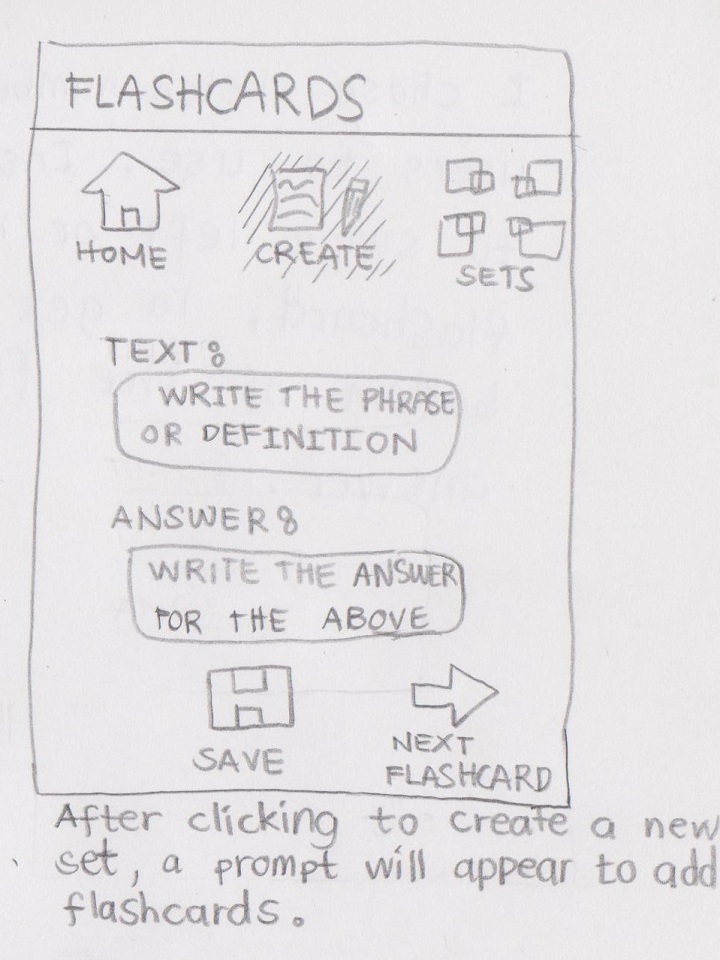 FLASHCARDS
HOME
CREATE
SETS
TEXT:
WRITE THE PHRASE
OR DEFINITION
ANSWER:
WRITE THE ANSWER
FOR THE ABOVE
SAVE
NEXT
FLASHCARD
After clicking to create a new
set, a prompt will appear to add
flashcards.